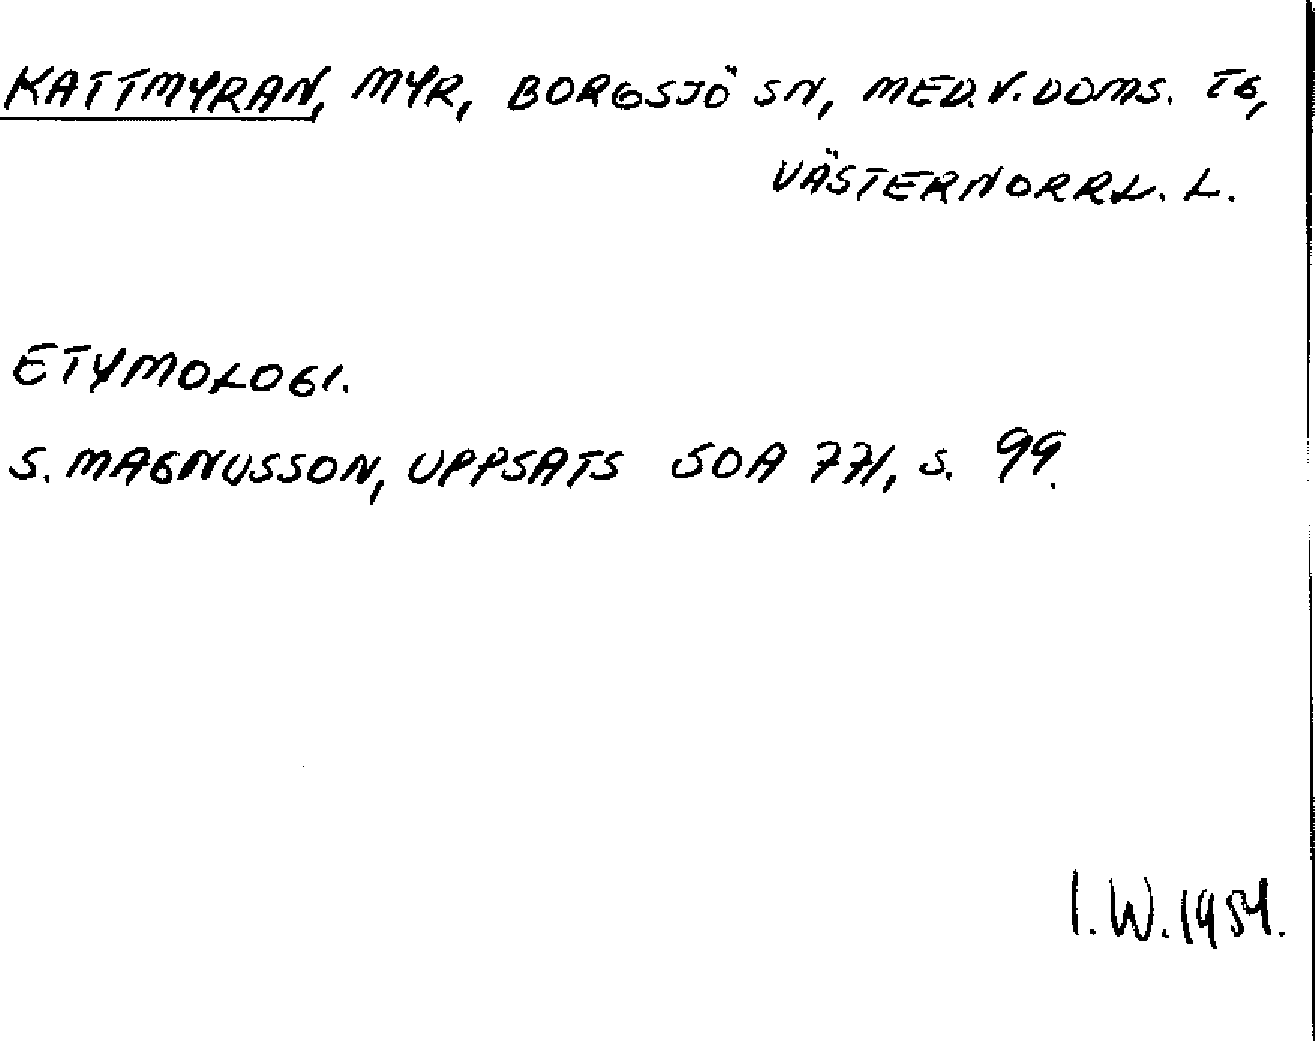 KATTMYRAN, MYR, BORGSJÖ SN, MED.V.DOMS. TG,
VÄSTERNORRL. L.
ETYMOLOGI.
S. MAGNUSSON, UPPSATS SOA 771, S. 99.
I.W.1954.